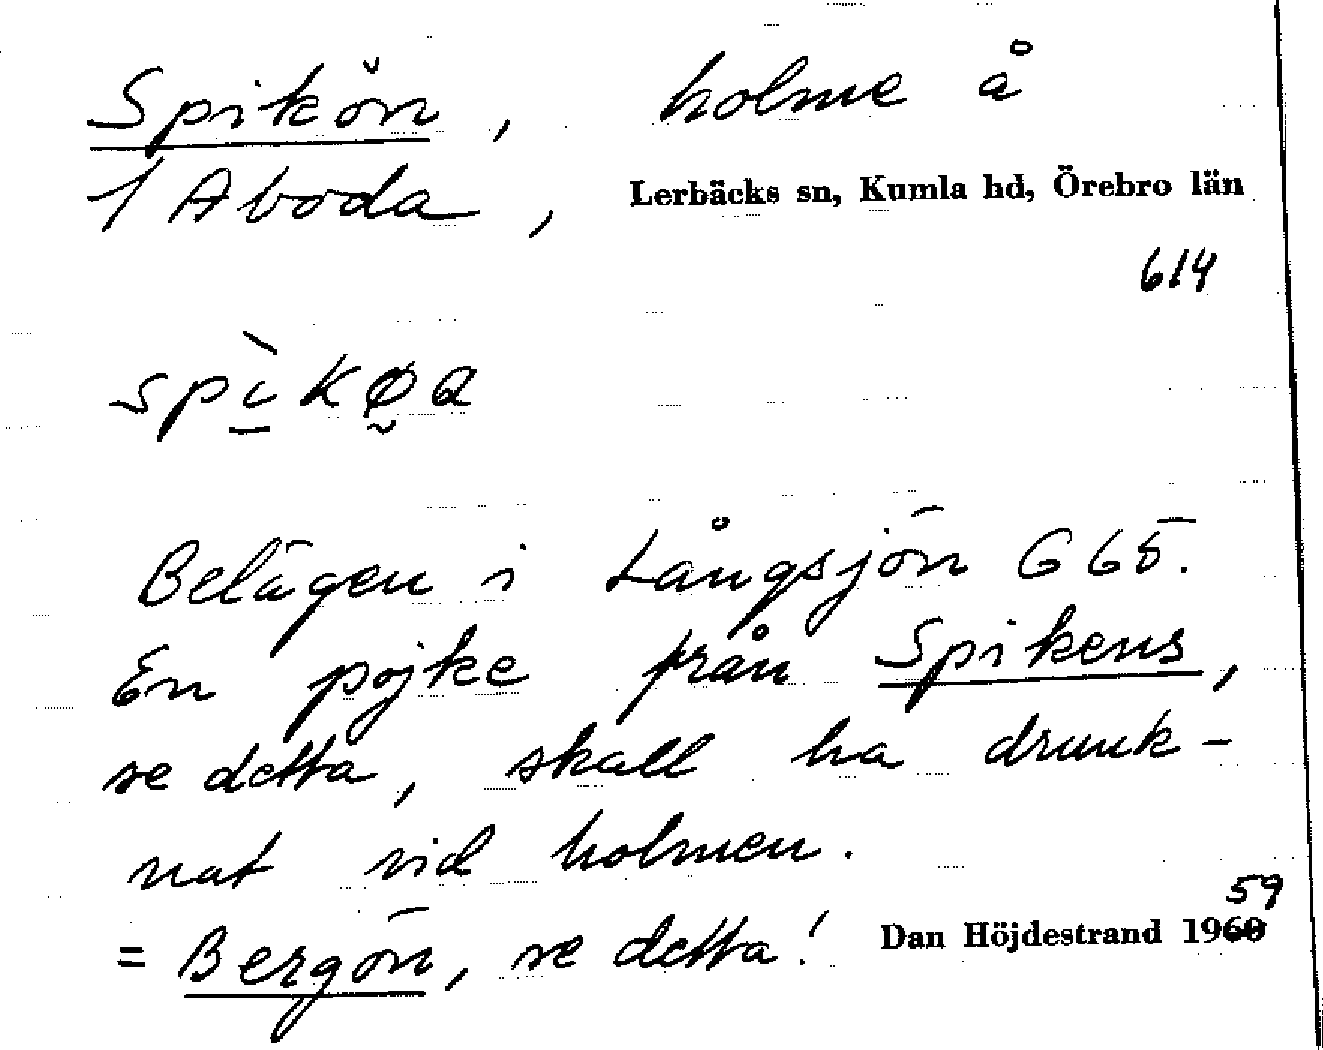 Spikön, holme å
1 Aboda, Lerbäcks sn, Kumla hd, Örebro län
614
Belägen i Långsjön G65.
En pojke från Spikens,
se detta, skall ha drunk-
nat vid holmen.
59
= Bergön, se detta! Dan Höjdestrand 1960